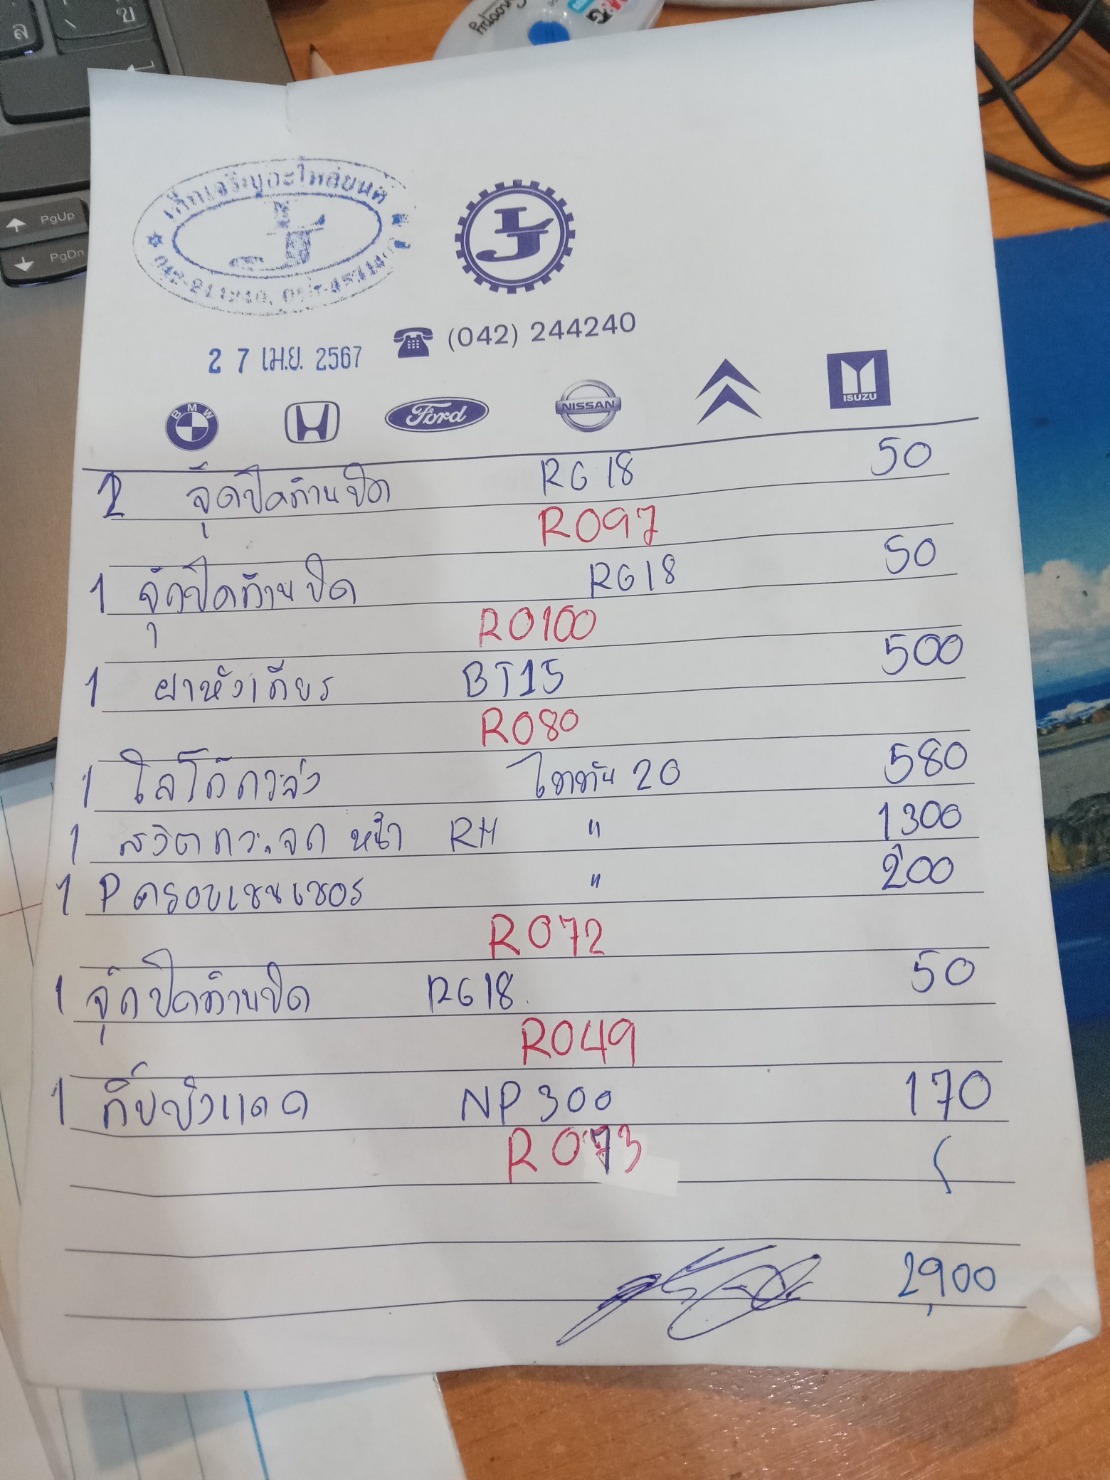 เค็กเจริญอะไหล่ยนต์
LJ
042-244240,
LJ
(042) 244240
2 7 เม.ย. 2567
BMW
Ford
NISSAN
ISUZU
2 จุ๊ดปิดก้านปัด RG18 50
R097
1 จุ๊ดปิดก้านปัด RG18 50
R0100
1 ฝาหัวเกียร BT15 500
R080
1 โลโก้กระจัง ไททัน 20 580
1 สวิตกระจก หน้า RH " 1300
1 P ครอบเซนเซอร " 200
R072
1 จุ๊ดปิดก้านปัด RG18 50
R049
1 กิ๊บบังแดด NP300 170
R073
2,900